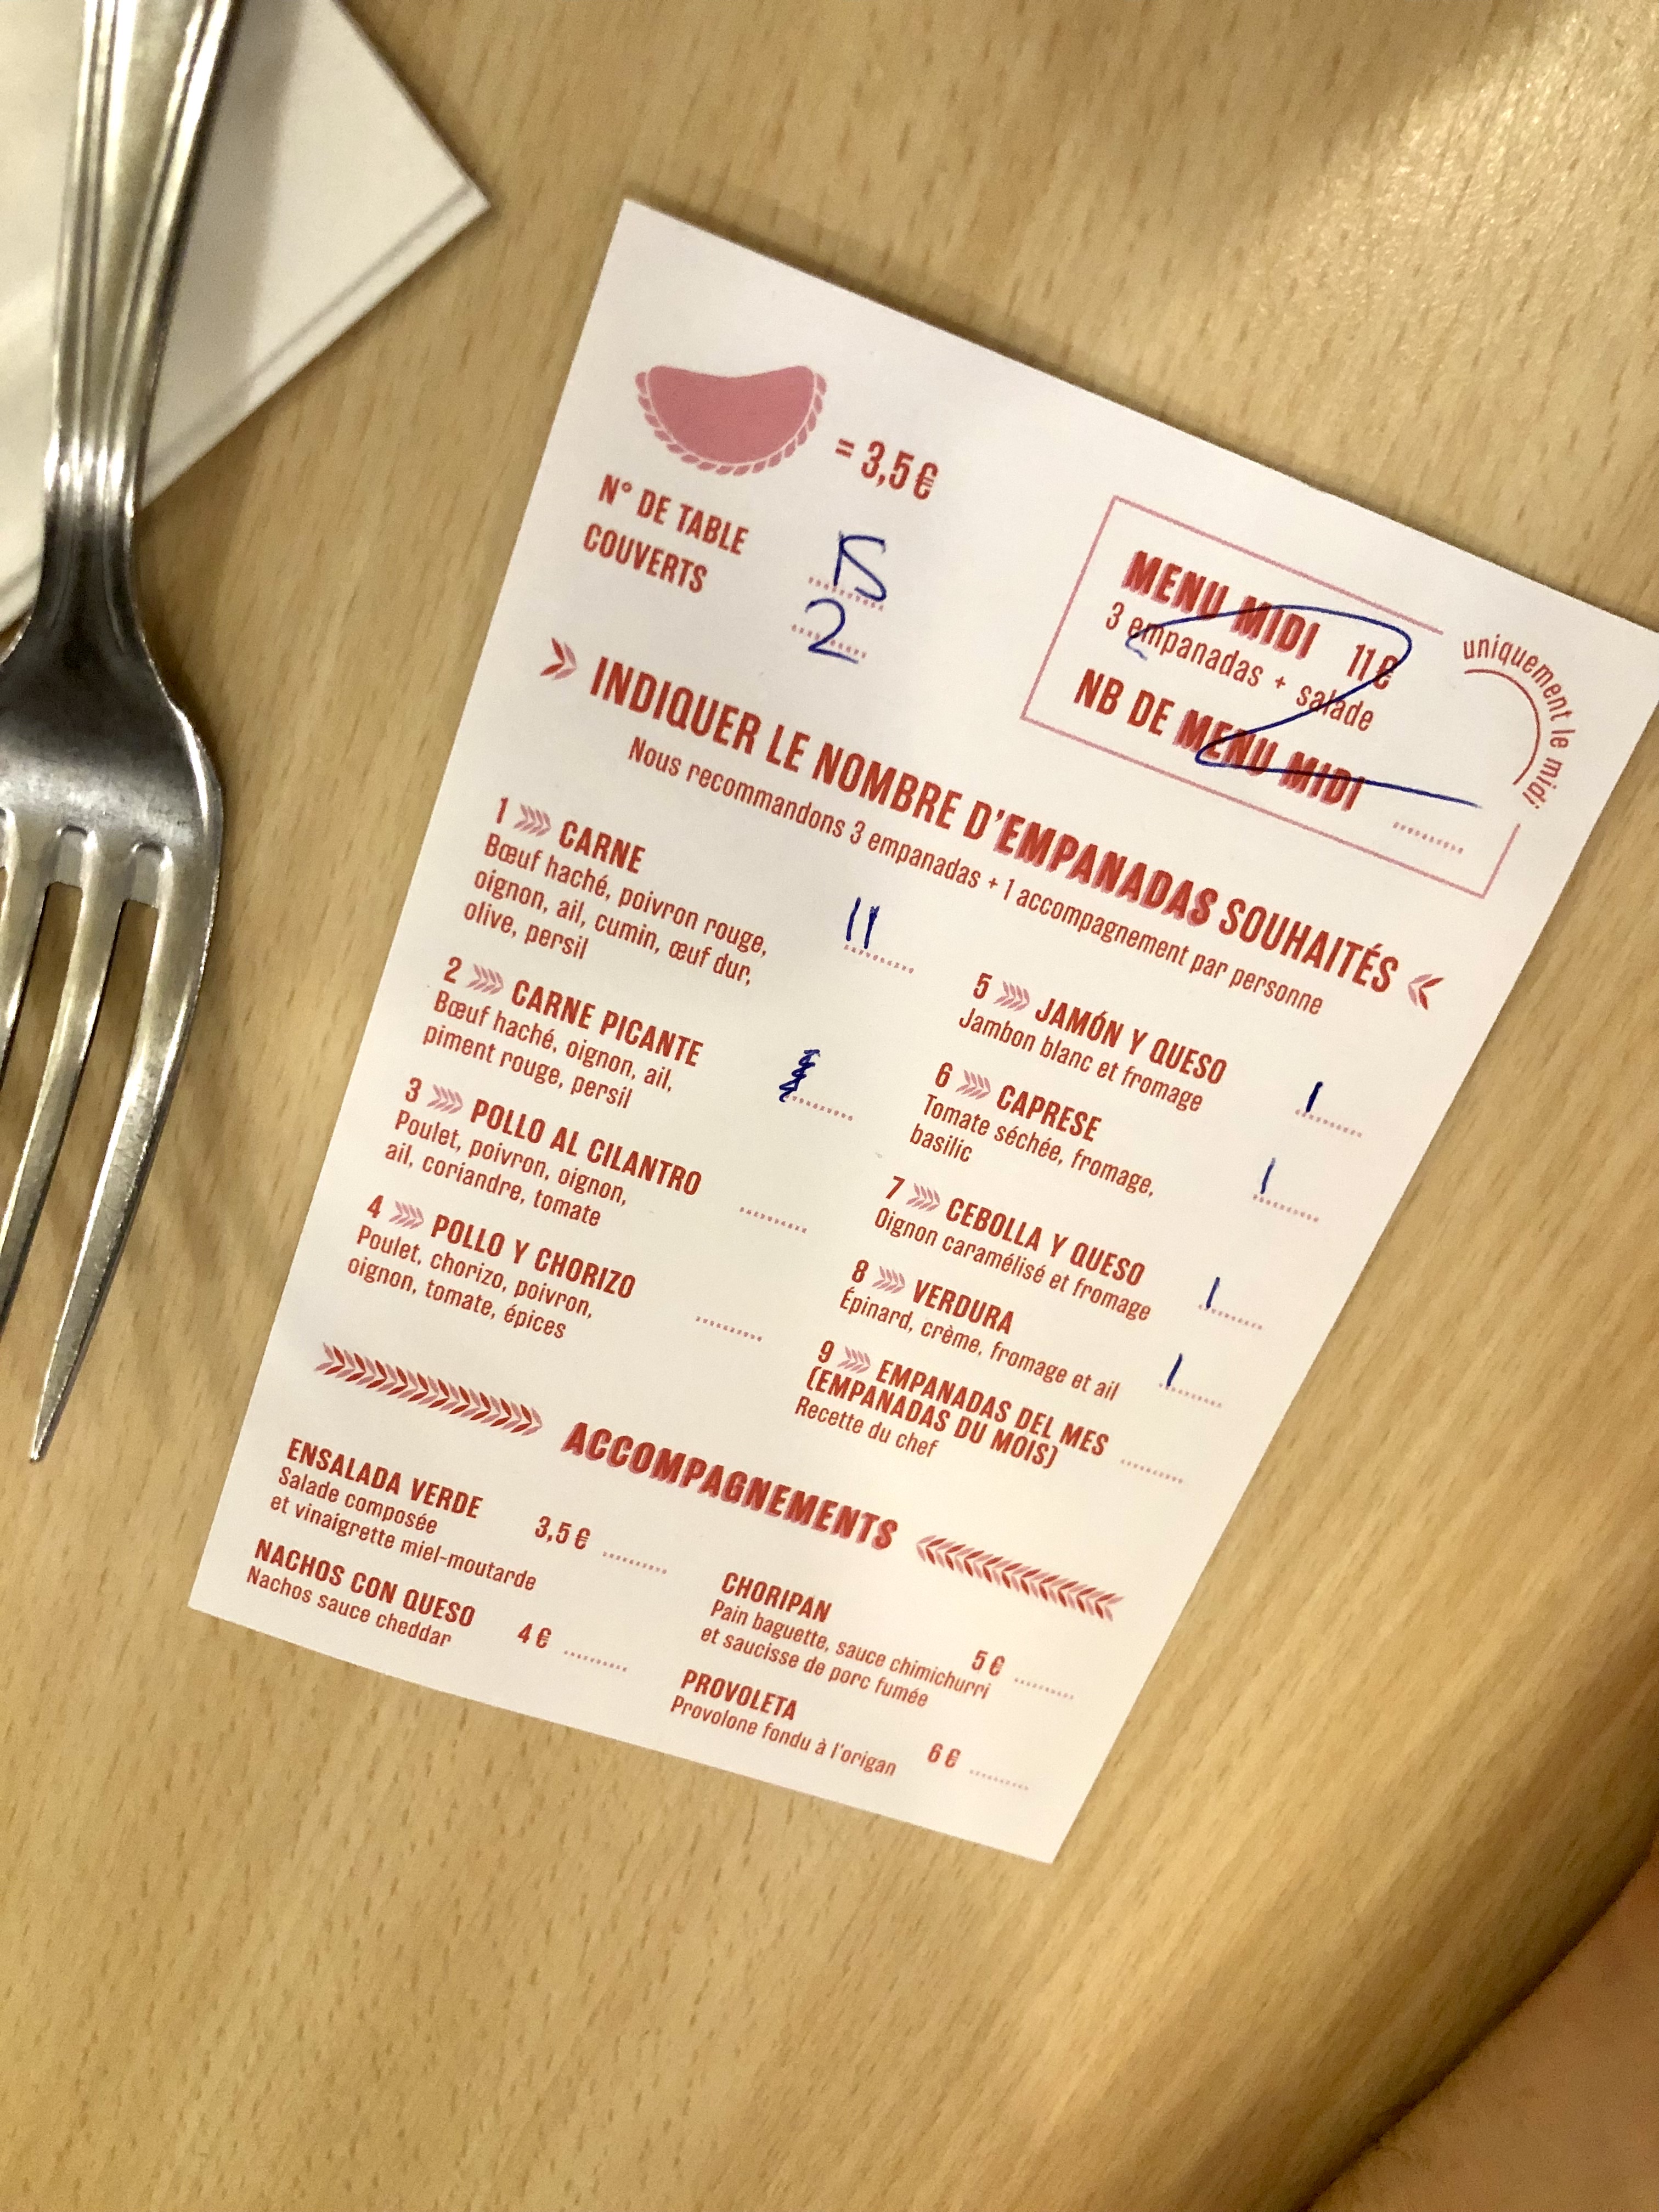 = 3,5 €
N° DE TABLE 15
COUVERTS 2
MENU MIDI 11 €
3 empanadas + salade
NB DE MENU MIDI ..........
uniquement le midi
INDIQUER LE NOMBRE D'EMPANADAS SOUHAITÉS
Nous recommandons 3 empanadas + 1 accompagnement par personne
1 CARNE
Bœuf haché, poivron rouge,
oignon, ail, cumin, œuf dur,
olive, persil
II
2 CARNE PICANTE
Bœuf haché, oignon, ail,
piment rouge, persil
3 POLLO AL CILANTRO
Poulet, poivron, oignon,
ail, coriandre, tomate
4 POLLO Y CHORIZO
Poulet, chorizo, poivron,
oignon, tomate, épices
5 JAMÓN Y QUESO
Jambon blanc et fromage
I
6 CAPRESE
Tomate séchée, fromage,
basilic
I
7 CEBOLLA Y QUESO
Oignon caramélisé et fromage
I
8 VERDURA
Épinard, crème, fromage et ail
I
9 EMPANADAS DEL MES
(EMPANADAS DU MOIS)
Recette du chef
ACCOMPAGNEMENTS
ENSALADA VERDE
Salade composée
et vinaigrette miel-moutarde
3,5 €
NACHOS CON QUESO
Nachos sauce cheddar
4 €
CHORIPAN
Pain baguette, sauce chimichurri
et saucisse de porc fumée
5 €
PROVOLETA
Provolone fondu à l'origan
6 €